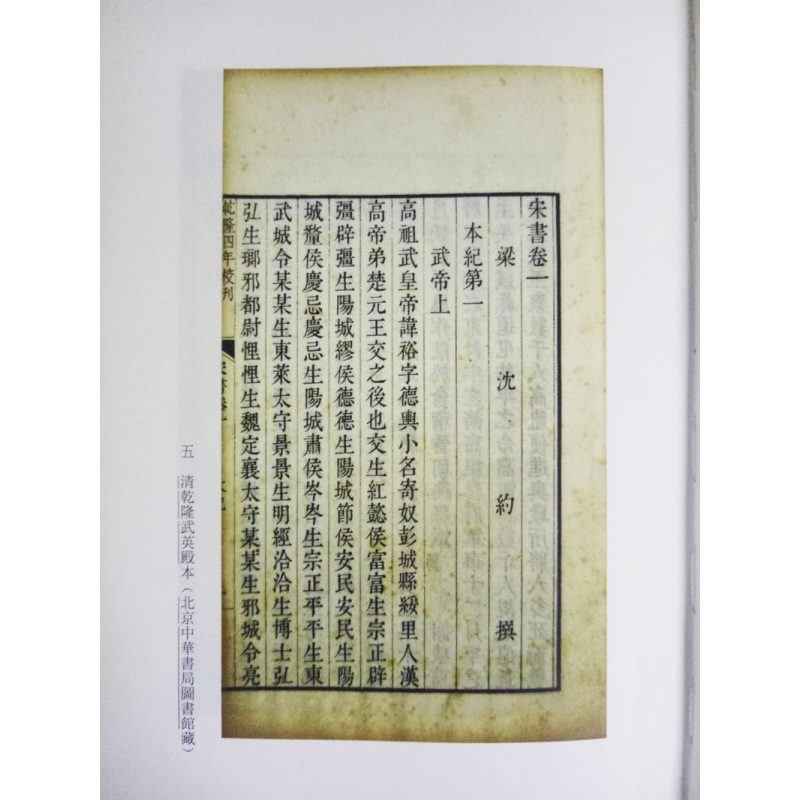 宋書卷一
梁沈約撰
本紀第一
武帝上
高祖武皇帝諱裕字德輿小名寄奴彭城縣綏里人漢
高帝弟楚元王交之後也交生紅懿侯富富生宗正辟
彊辟彊生陽城繆侯德德生陽城節侯安民安民生陽
城釐侯慶忌慶忌生陽城肅侯岑岑生宗正平平生東
武城令某某生東萊太守景景生明經洽洽生博士弘
弘生瑯邪都尉悝悝生魏定襄太守某某生邪城令亮
乾隆四年校刊
五　清乾隆武英殿本（北京中華書局圖書館藏）